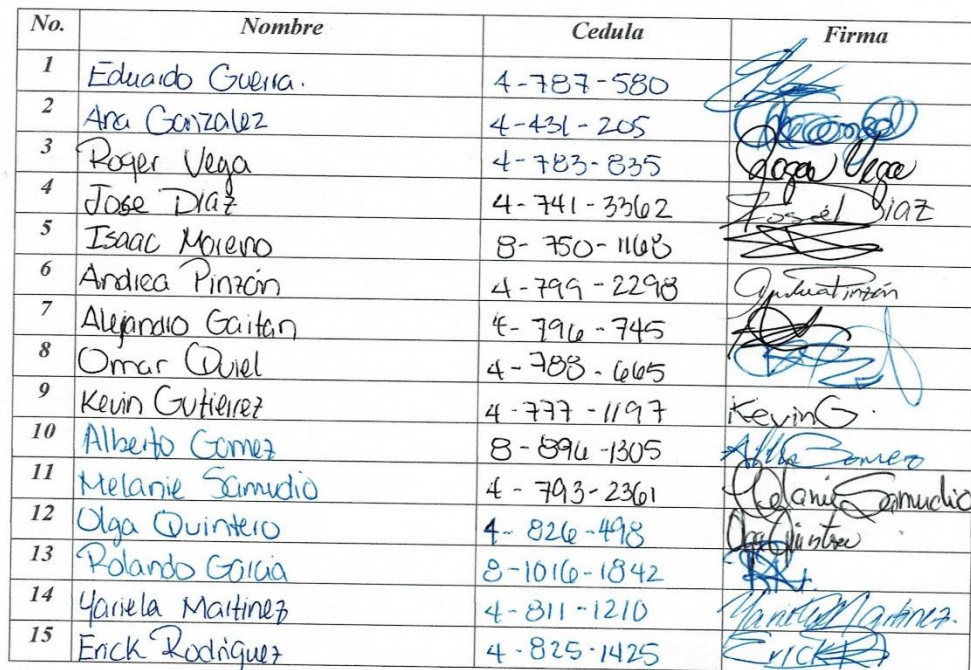 No. Nombre Cedula Firma
1 Eduardo Guerra. 4-787-580
2 Ana Gonzalez 4-431-205
3 Roger Vega 4-783-835 Roger Vega
4 Jose Diaz 4-741-3362 Diaz
5 Isaac Moreno 8-750-1168
6 Andrea Pinzón 4-799-2298 Andrea Pinzón
7 Alejandro Gaitan 4-796-745
8 Omar Quiel 4-788-665
9 Kevin Gutierrez 4-777-1197 Kevin G.
10 Alberto Gomez 8-896-1305 Gomez
11 Melanie Samudio 4-793-2361 Melanie Samudio
12 Olga Quintero 4-826-498 Olga Quintero
13 Rolando Garcia 8-1016-1842
14 Yariela Martinez 4-811-1210 Yariela Martinez.
15 Erick Rodriguez 4-825-1425 Erick